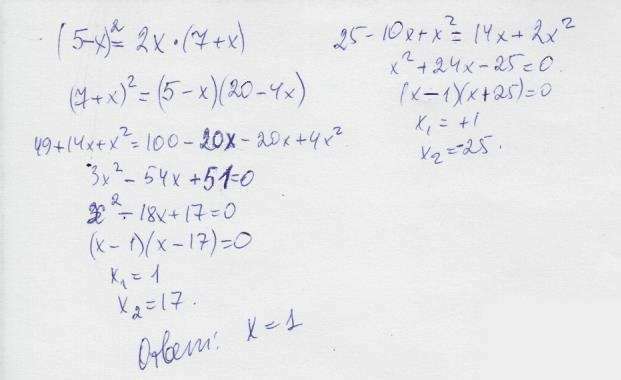 (5-x)² = 2x·(7+x)
(7+x)² = (5-x)(20-4x)
49+14x+x² = 100-20x-20x+4x²
3x²-54x+51=0
x²-18x+17=0
(x-1)(x-17)=0
x₁=1
x₂=17.
Ответ: x=1
25-10x+x² = 14x+2x²
x²+24x-25=0
(x-1)(x+25)=0
x₁=+1
x₂=-25.